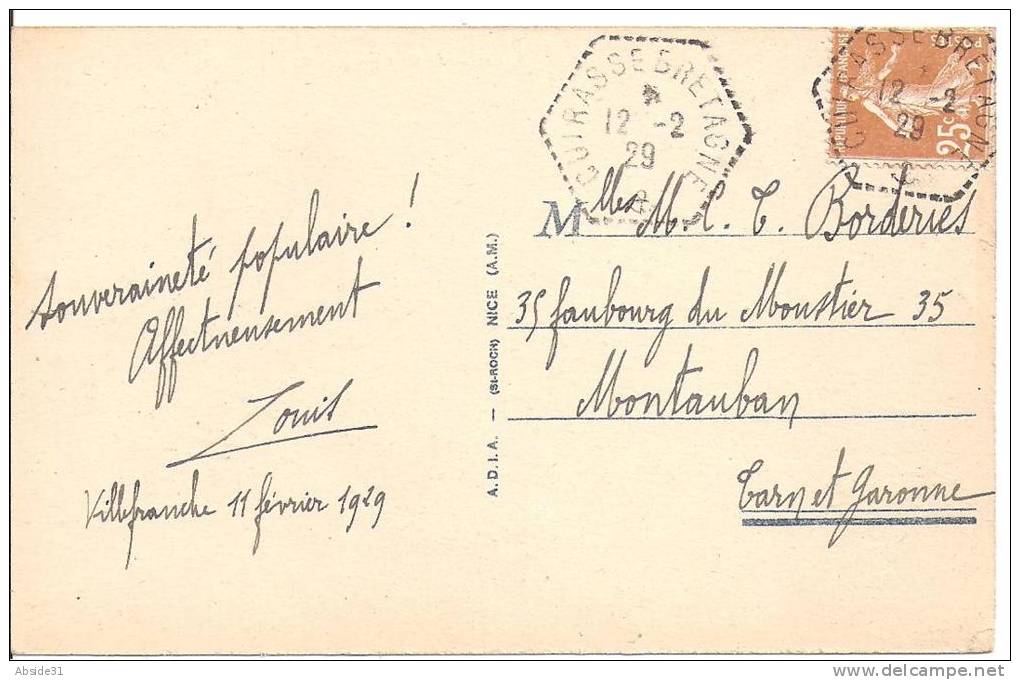 souveraineté populaire !
Affectueusement
Louis
Villefranche 11 février 1929
A. D. I. A. — (St-ROCH) NICE (A.M.)
CUIRASSE BRETAGNE
12 -2
29
CUIRASSE BRETAGNE
12 -2
29
POSTES
25c
Mlles M. L. T. Borderies
35 faubourg du Moustier 35
Montauban
Tarn et Garonne
Abside31
www.delcampe.net